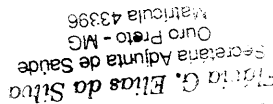 Flávia G. Elias da Silva
Secretária Adjunta de Saúde
Ouro Preto - MG
Matrícula 43396